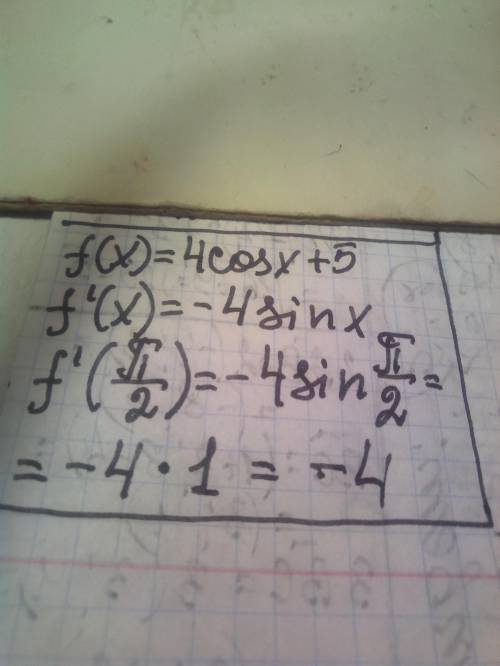 f(x)=4cosx+5
f'(x)=-4sinx
f'(π/2)=-4sin π/2=
=-4·1=-4